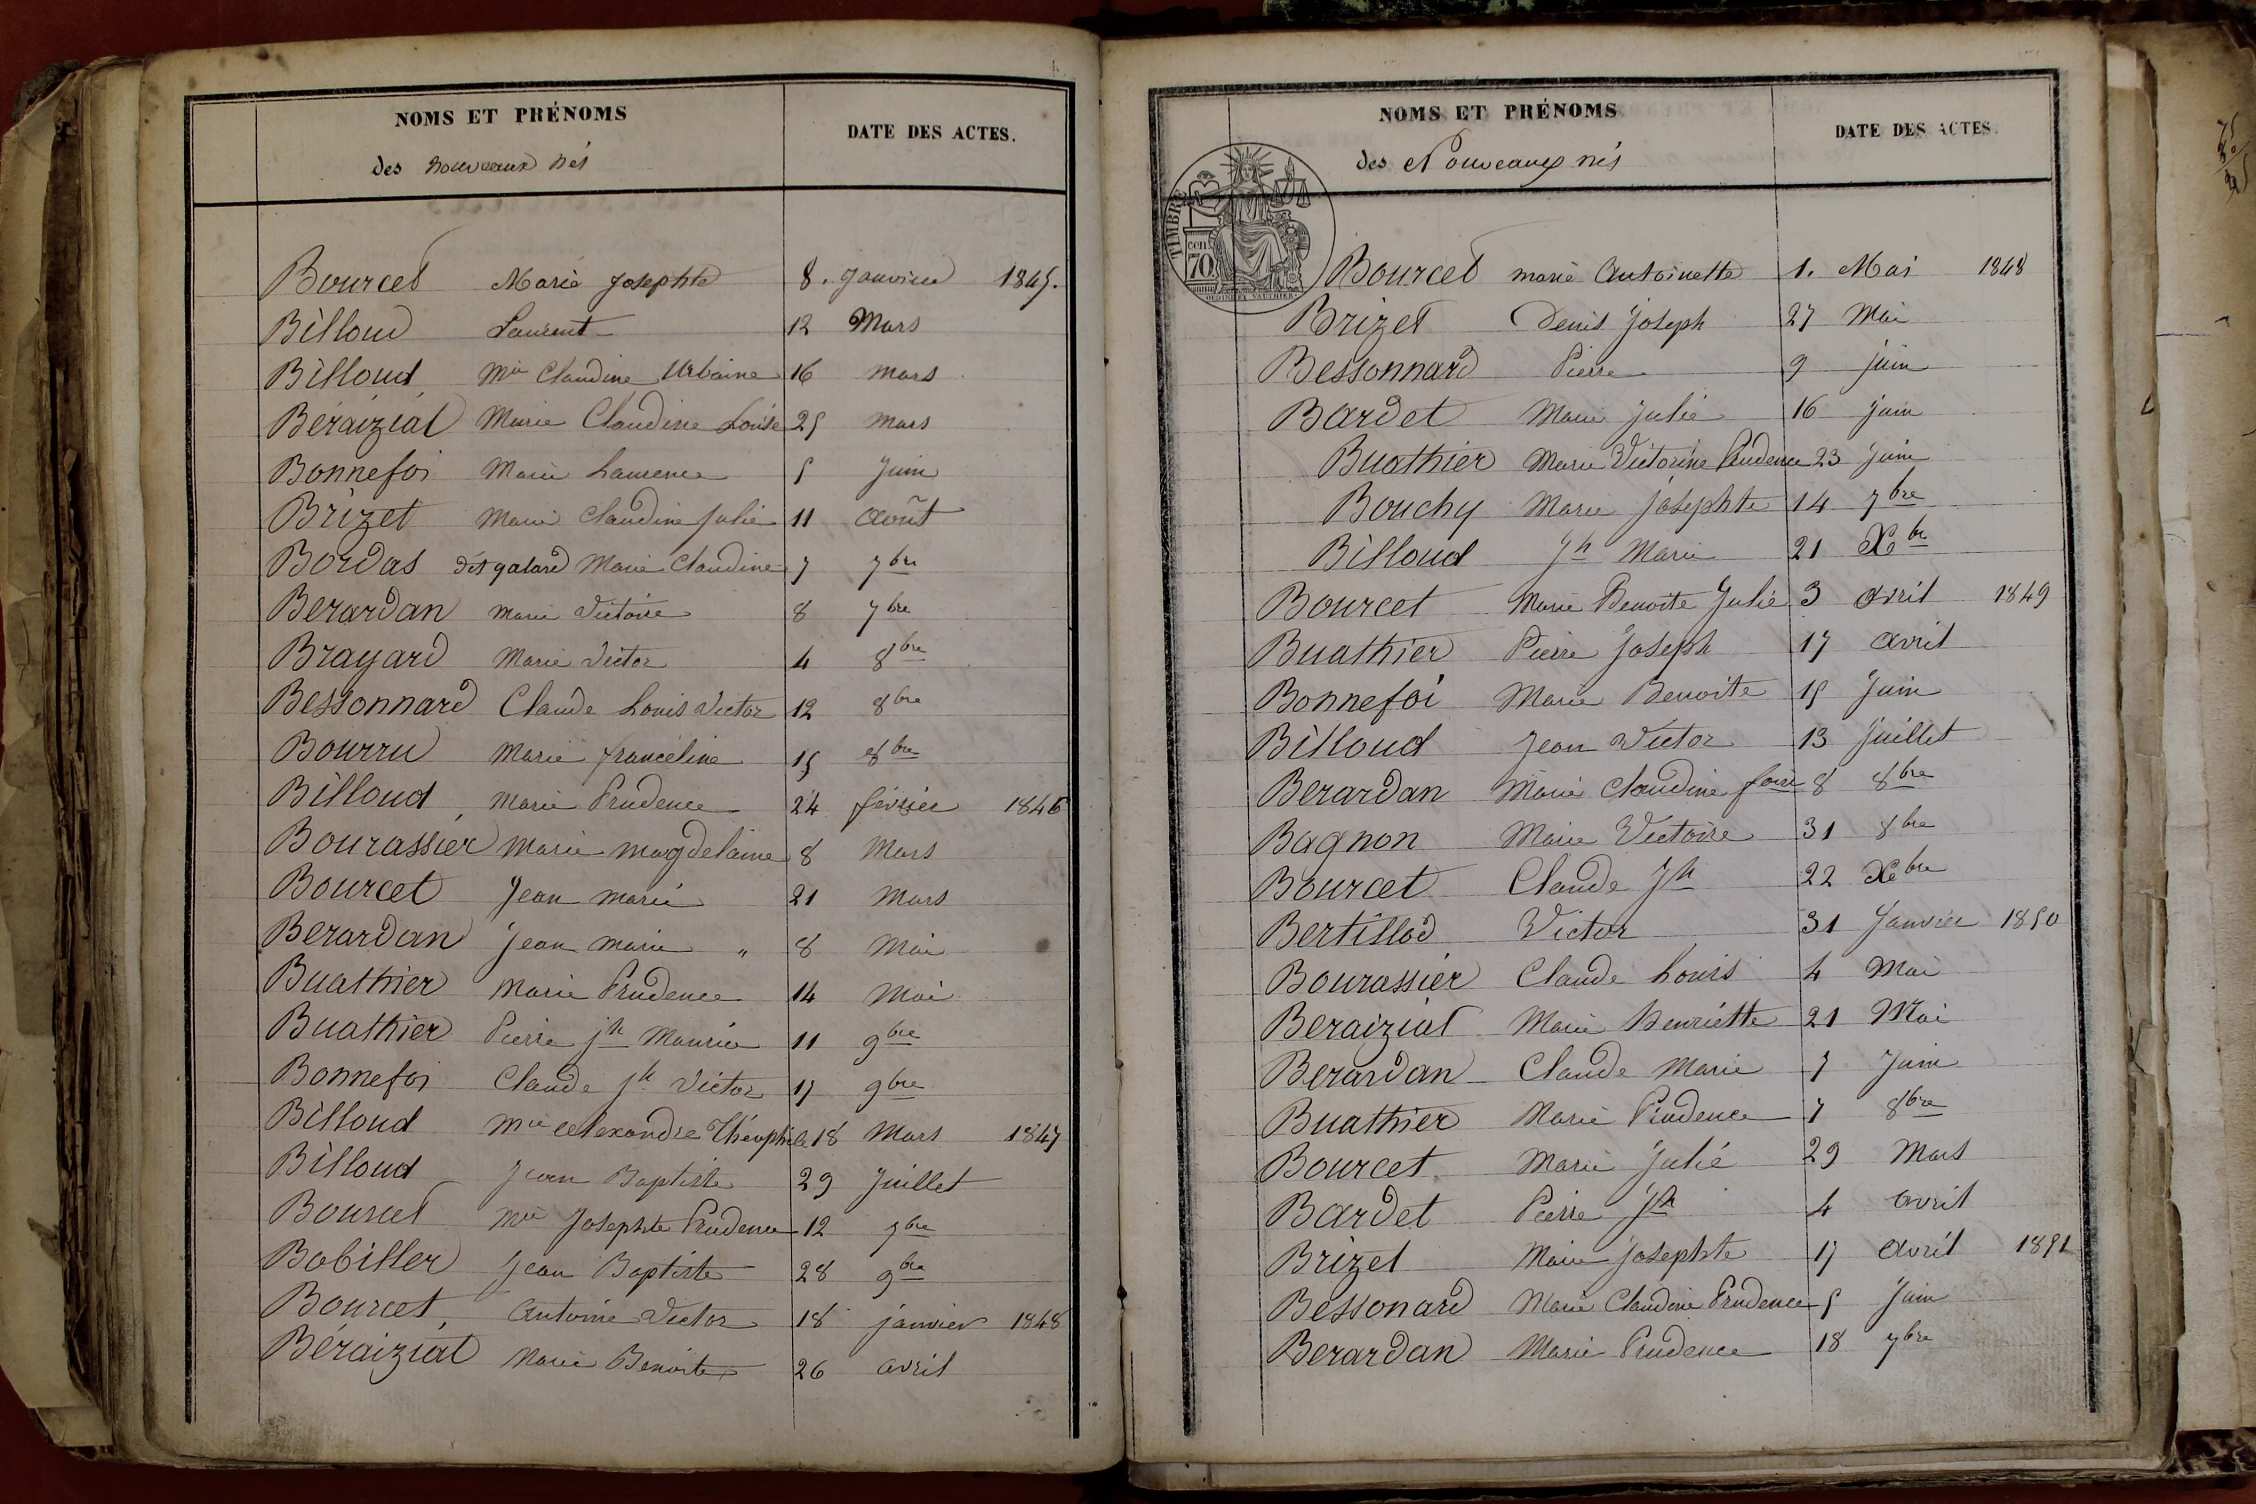 NOMS ET PRÉNOMS
des nouveaux nés
DATE DES ACTES.
Bourcet Marie Josephte 8. Janvier 1845.
Billoud Laurent 12 Mars
Billoud Mie Claudine Urbaine 16 mars
Béraiziat Marie Claudine Louise 25 mars
Bonnefoi Marie Laurence 5 Juin
Brizet Marie Claudine Julie 11 Août
Bordas dit galard Marie Claudine 7 7bre
Berardan marie Victoire 8 7bre
Brayard Marie Victor 4 8bre
Bessonnard Claude Louis Victor 12 8bre
Bourru Marie francéline 15 8bre
Billoud Marie Prudence 24 février 1846
Bourassier Marie magdelaine 8 Mars
Bourcet Jean marie 21 Mars
Berardan Jean marie " 8 Mai
Buathier Marie Prudence 14 Mai
Buathier Pierre jh Maurice 11 9bre
Bonnefoi Claude jh Victor 17 9bre
Billoud Mie Alexandre Théophile 18 Mars 1847
Billoud Jean Baptiste 29 Juillet
Bourcet Mie Josephte Prudence 12 9bre
Bobiller Jean Baptiste 28 9bre
Bourcet, Antoine Victor 18 janvier 1848
Béraiziat Marie Benoite 26 avril
NOMS ET PRÉNOMS
des Nouveaux nés
DATE DES ACTES.
TIMBRE
cen
70
Bourcet marie Antoinette 1. Mai 1848
Brizet Denis Joseph 27 Mai
Bessonnard Pierre 9 juin
Bardet Marie Julie 16 juin
Buathier Marie Victorine Prudence 23 juin
Bouchy Marie Josephte 14 7bre
Billoud Jh Marie 21 Xbre
Bourcet Marie Benoite Julie 3 avril 1849
Buathier Pierre Joseph 17 avril
Bonnefoi Marie Benoite 15 Juin
Billoud Jean Victor 13 Juillet
Berardan Marie Claudine 8 8bre
Bagnon Marie Victoire 31 8bre
Bourcet Claude Jh 22 Xbre
Bertillod Victor 31 Janvier 1850
Bourassier Claude Louis 4 Mai
Beraiziat Marie Henriette 21 Mai
Berardan Claude Marie 7 Juin
Buathier Marie Prudence 7 8bre
Bourcet Marie Julie 29 Mars
Bardet Pierre Jh 4 avril
Brizet Marie Josephte 17 Avril 1851
Bessonard Marie Claudine Prudence 5 Juin
Berardan Marie Prudence 18 7bre